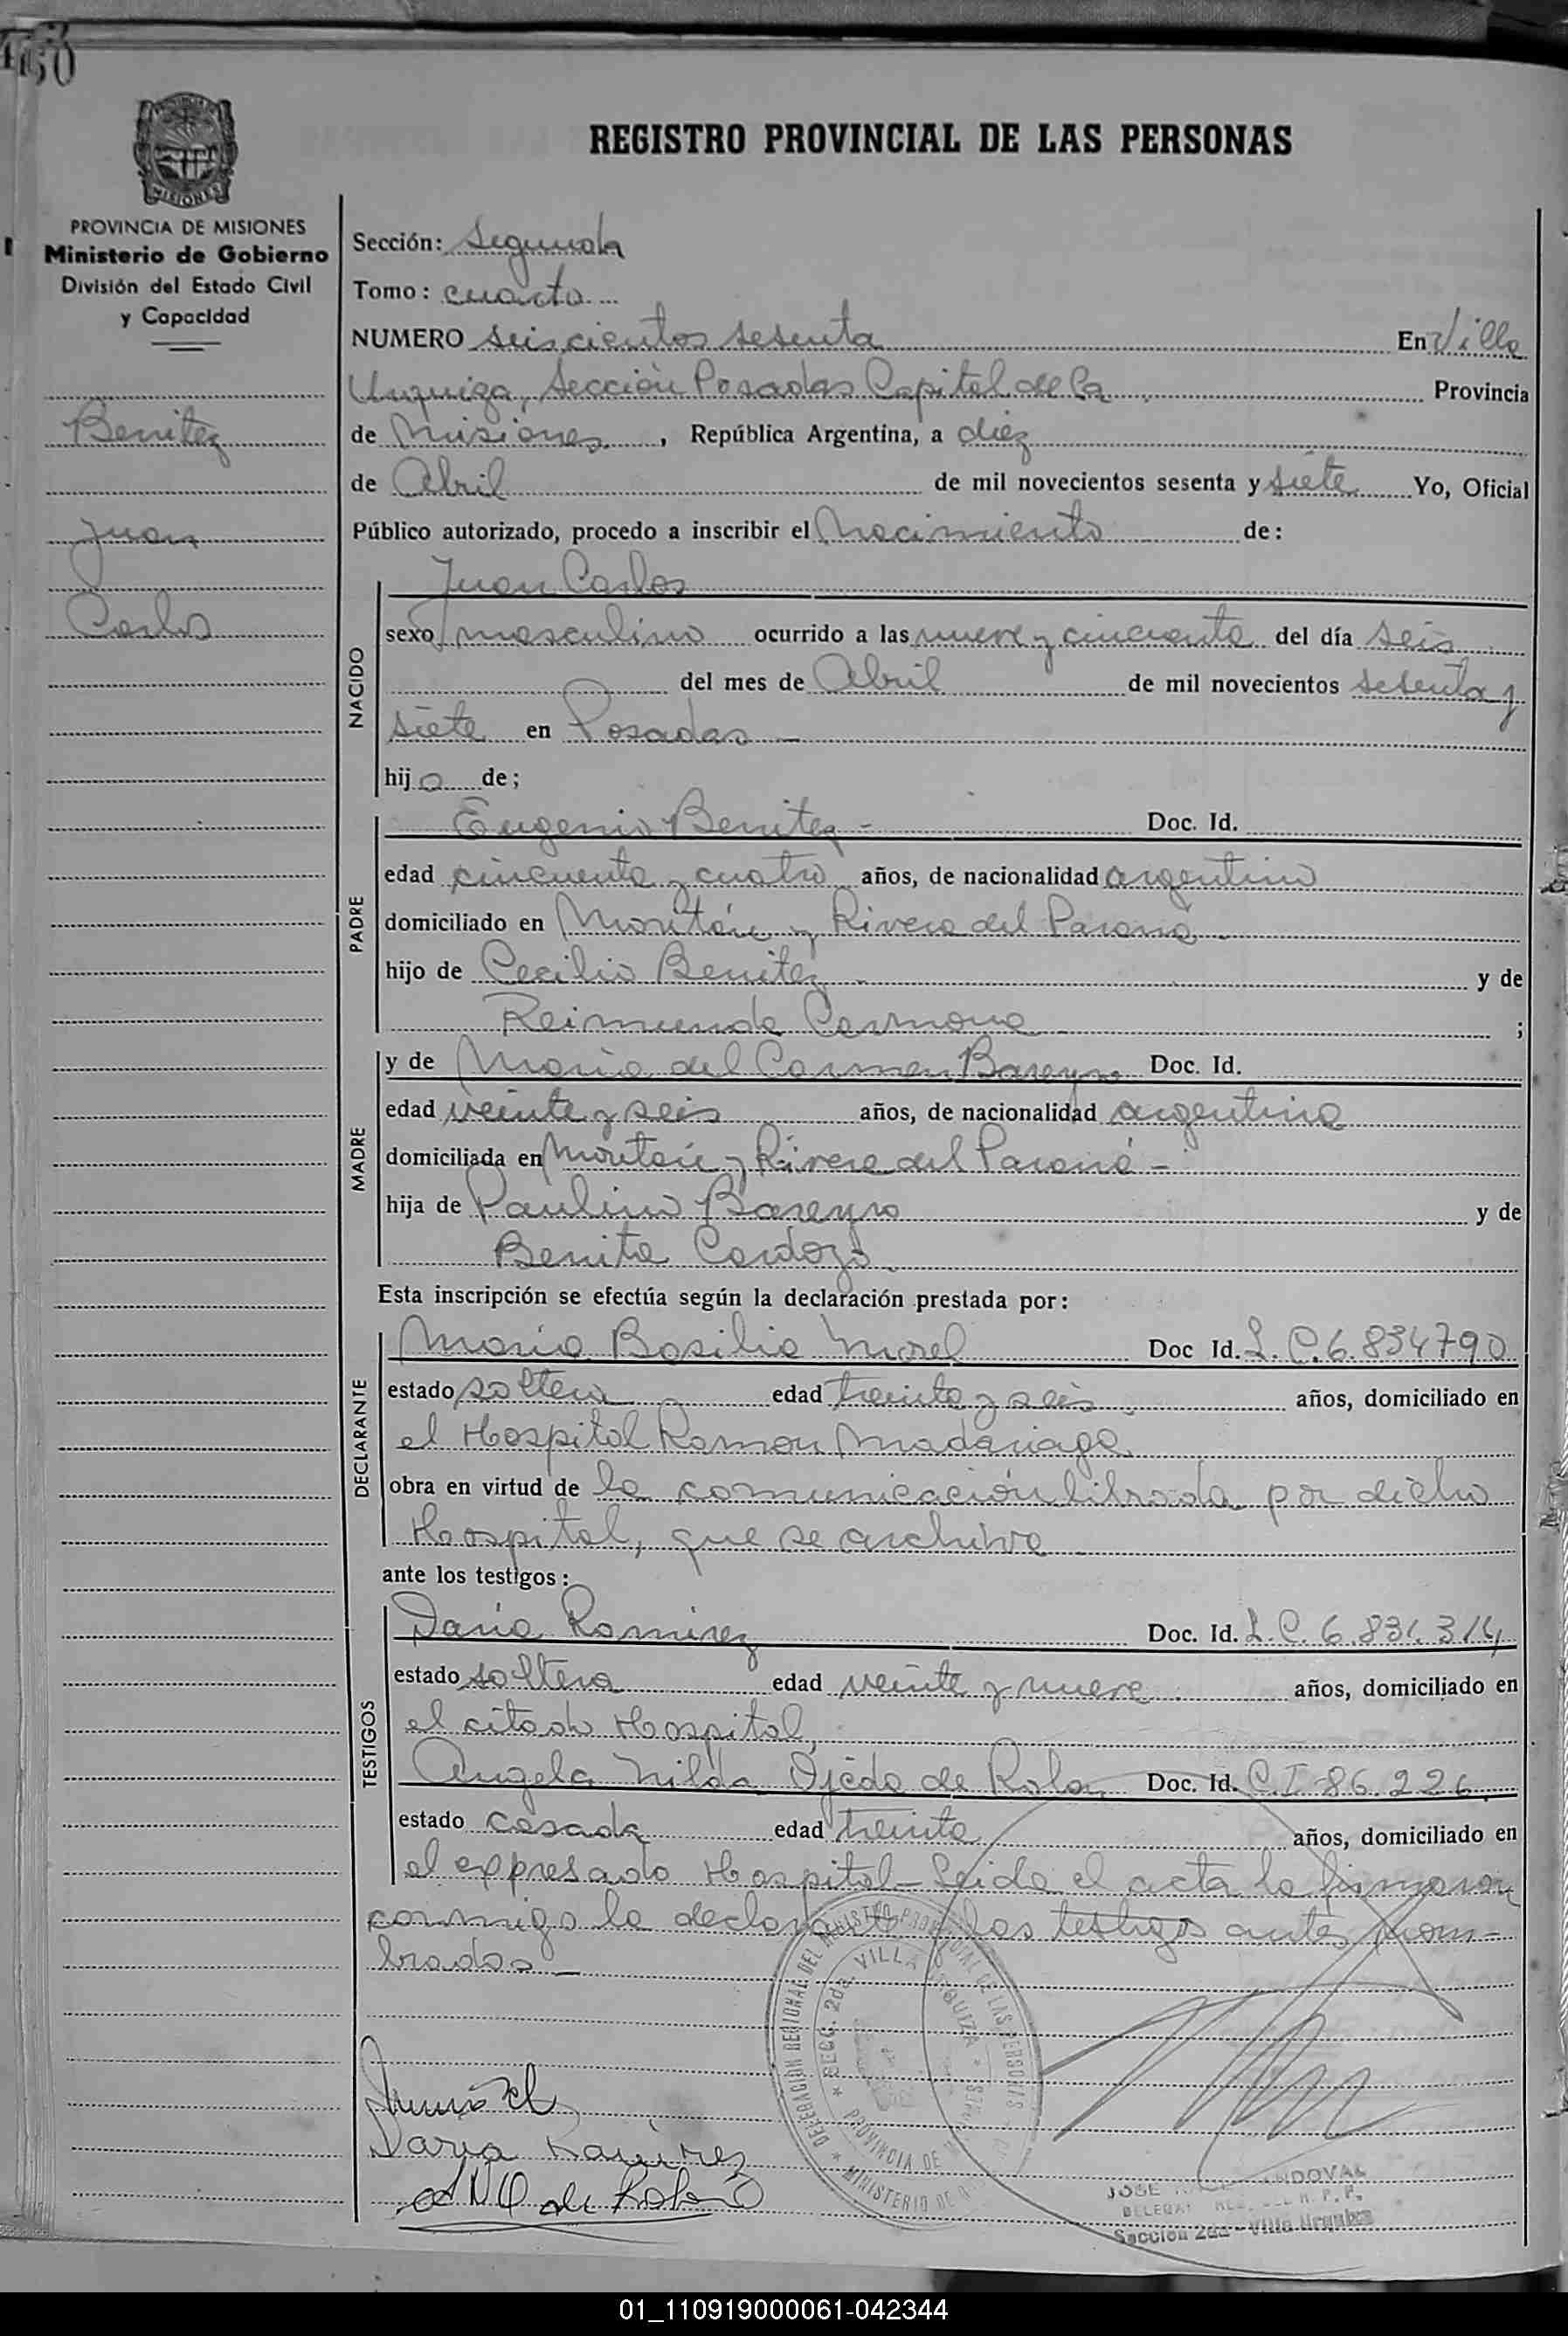 REGISTRO PROVINCIAL DE LAS PERSONAS
MISIONES
PROVINCIA DE MISIONES
Ministerio de Gobierno
División del Estado Civil
y Capacidad
Benitez
Juan
Carlos
Sección: Segunda
Tomo: cuarto
NUMERO seiscientos sesenta En Villa
Urquiza, Sección Posadas Capital de la Provincia
de Misiones, República Argentina, a diez
de Abril de mil novecientos sesenta y siete Yo, Oficial
Público autorizado, procedo a inscribir el Nacimiento de:
NACIDO
Juan Carlos
sexo masculino ocurrido a las nueve y cincuenta del día seis
del mes de Abril de mil novecientos sesenta y
siete en Posadas –
hijo de;
PADRE
Eugenio Benitez – Doc. Id.
edad cincuenta y cuatro años, de nacionalidad argentino
domiciliado en Montái y Rivera del Paraná –
hijo de Cecilio Benitez y de
Reimunda Carmona ;
MADRE
y de Maria del Carmen Bareyro Doc. Id.
edad veinte y seis años, de nacionalidad argentina
domiciliada en Montái y Rivera del Paraná –
hija de Paulino Bareyro y de
Benita Cardozo
Esta inscripción se efectúa según la declaración prestada por:
DECLARANTE
Maria Basilia Morel Doc Id. L. C. 6.834790
estado soltera edad treinta y seis años, domiciliado en
el Hospital Ramon Madariaga
obra en virtud de la comunicación librada por dicho
Hospital, que se archiva
ante los testigos:
TESTIGOS
Daria Ramirez Doc. Id. L. C. 6.831.314
estado soltera edad veinte y nueve años, domiciliado en
el citado Hospital,
Angela Nilda Ojeda de Rolon Doc. Id. C. I 86.226
estado casada edad treinta años, domiciliado en
el expresado Hospital – Leida el acta la firmaron
conmigo la declarante y los testigos antes nom-
brados –
DELEGACIÓN REGIONAL DEL REGISTRO PROVINCIAL DE LAS PERSONAS
SECC. 2da. VILLA URQUIZA
PROVINCIA DE MISIONES
MINISTERIO DE
Daria Ramirez
ANO de Rolon
JOSE SANDOVAL
DELEGAD REG. DEL R. P. P.
Sección 2da - Villa Urquiza
01_110919000061-042344